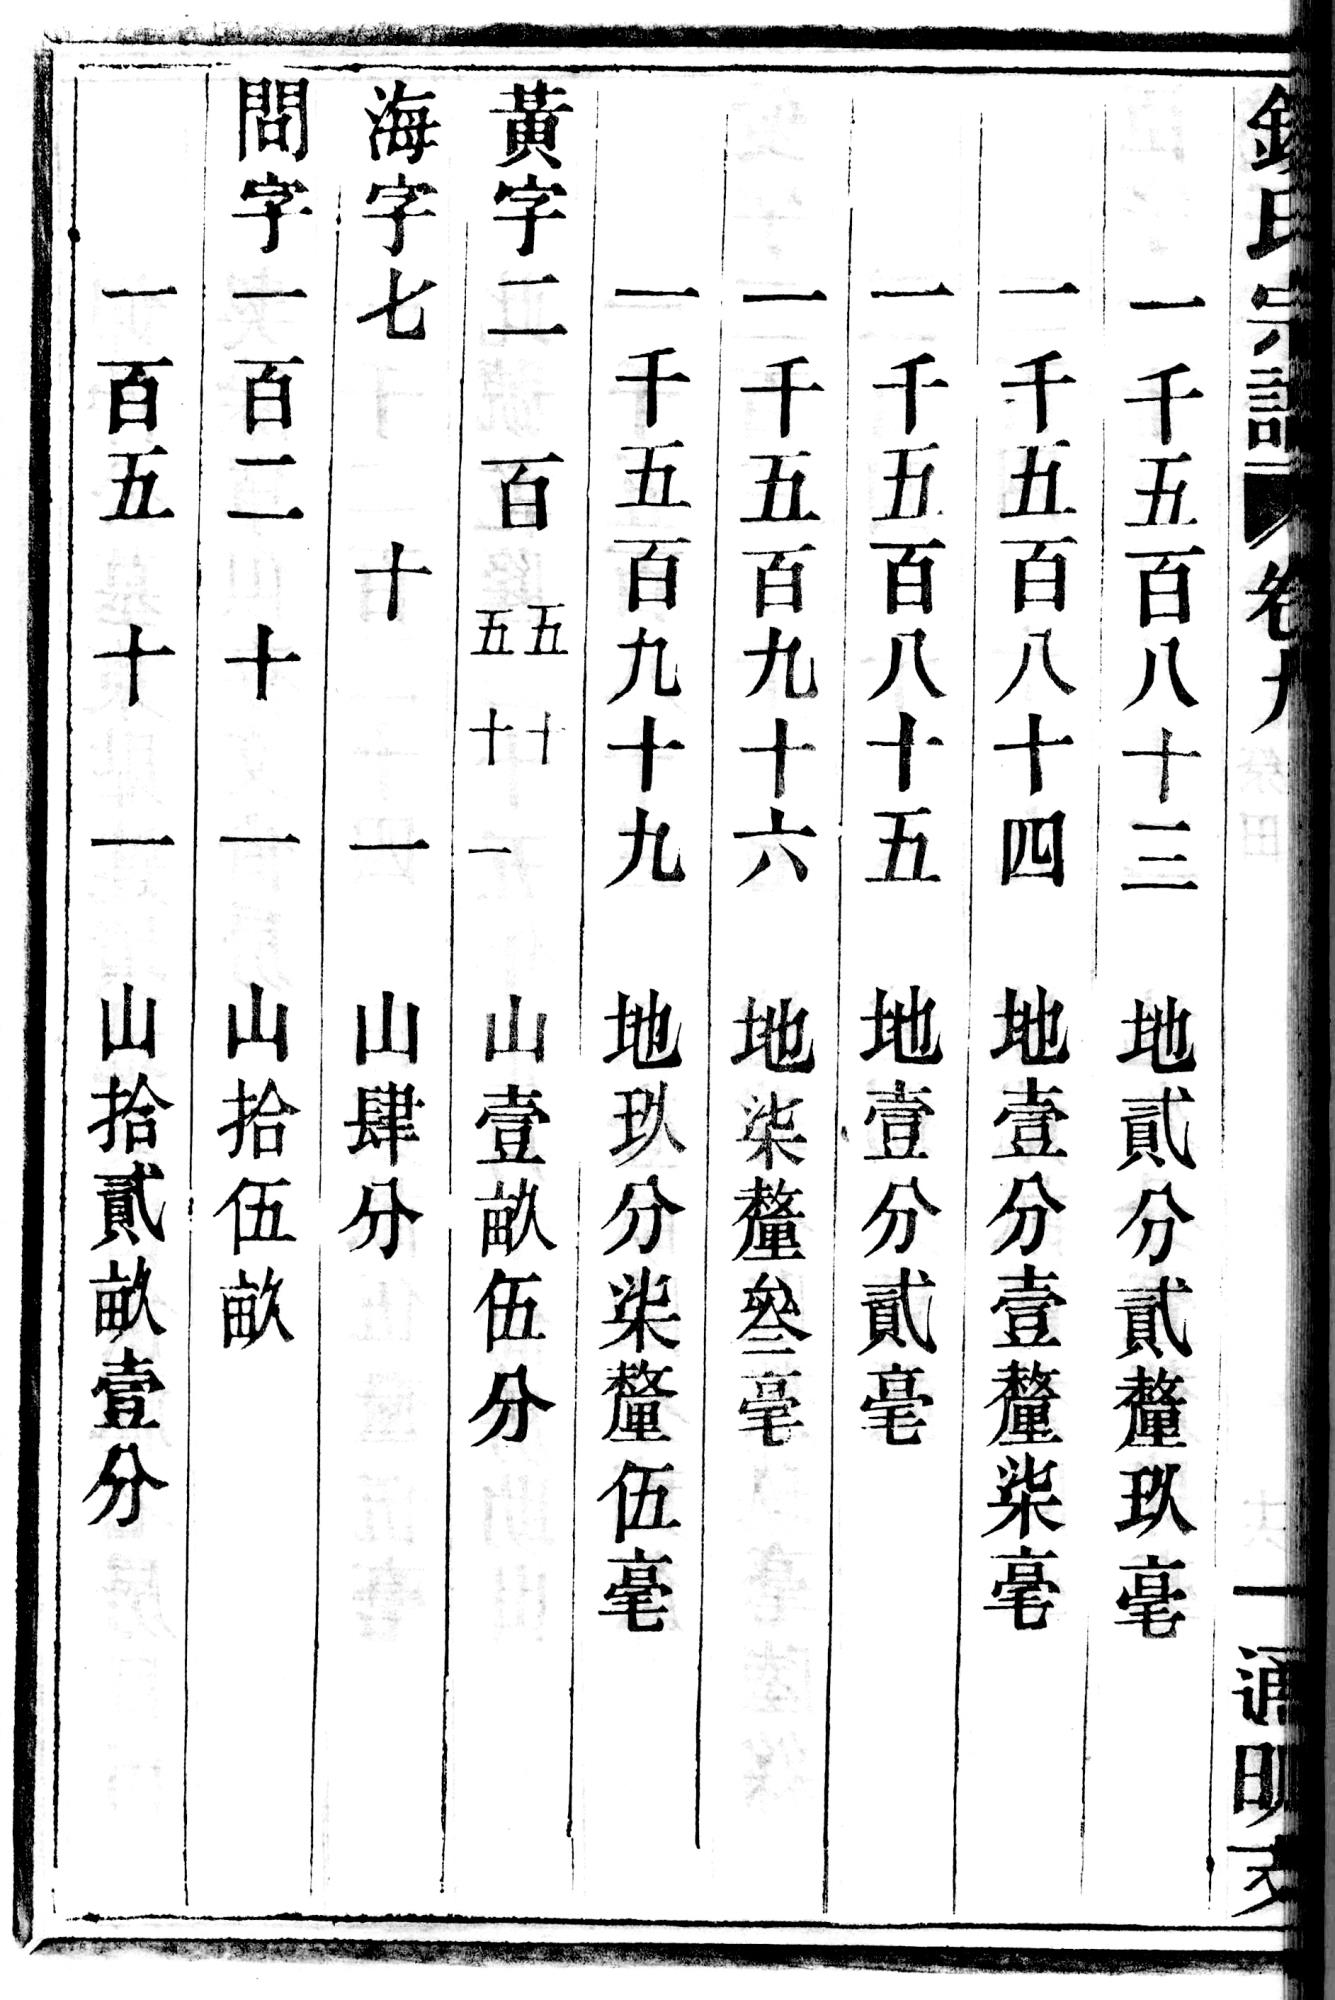 氏宗譜 卷九 一 通明支
一千五百八十三 地貳分貳釐玖毫
一千五百八十四 地壹分壹釐柒毫
一千五百八十五 地壹分貳毫
一千五百九十六 地柒釐叁毫
一千五百九十九 地玖分柒釐伍毫
黃字二百五十五十一 山壹畝伍分
海字七十一 山肆分
問字一百二十一 山拾伍畝
一百五十一 山拾貳畝壹分